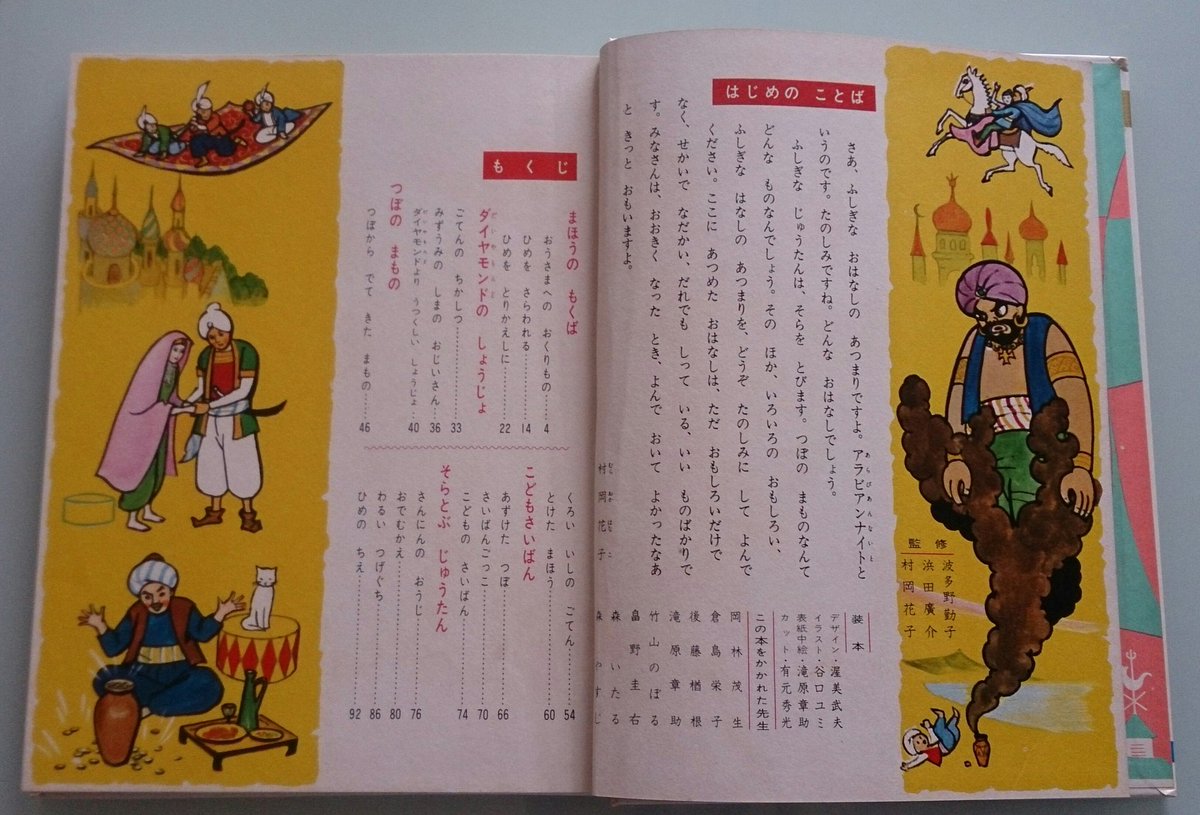 はじめの ことば
さあ、ふしぎな おはなしの あつまりですよ。アラビアンナイトと
いうのです。たのしみですね。どんな おはなしでしょう。
ふしぎな じゅうたんは、そらを とびます。つぼの まものなんて
どんな ものなんでしょう。その ほか、いろいろの おもしろい、
ふしぎな はなしの あつまりを、どうぞ たのしみに して よんで
ください。ここに あつめた おはなしは、ただ おもしろいだけで
なく、せかいで なだかい、だれでも しって いる、いい ものばかりで
す。みなさんは、おおきく なった とき、よんで おいて よかったなあ
と きっと おもいますよ。
村岡花子
監修
波多野勤子
浜田廣介
村岡花子
装本
デザイン・渥美武夫
イラスト・谷口ユミ
表紙中絵・滝原章助
カット・有元秀光
この本をかかれた先生
岡林茂生
倉島栄子
後藤楢根
滝原章助
竹山のぼる
畠野圭右
森いたる
森やすじ
もくじ
まほうの もくば
おうさまへの おくりもの……4
ひめを さらわれる……14
ひめを とりかえしに……22
ダイヤモンドの しょうじょ
ごてんの ちかしつ……33
みずうみの しまの おじいさん……36
ダイヤモンドより うつくしい しょうじょ……40
つぼの まもの
つぼから でて きた まもの……46
くろい いしの ごてん……54
とけた まほう……60
こどもさいばん
あずけた つぼ……66
さいばんごっこ……70
こどもの さいばん……74
そらとぶ じゅうたん
さんにんの おうじ……76
おでむかえ……80
わるい つげぐち……86
ひめの ちえ……92